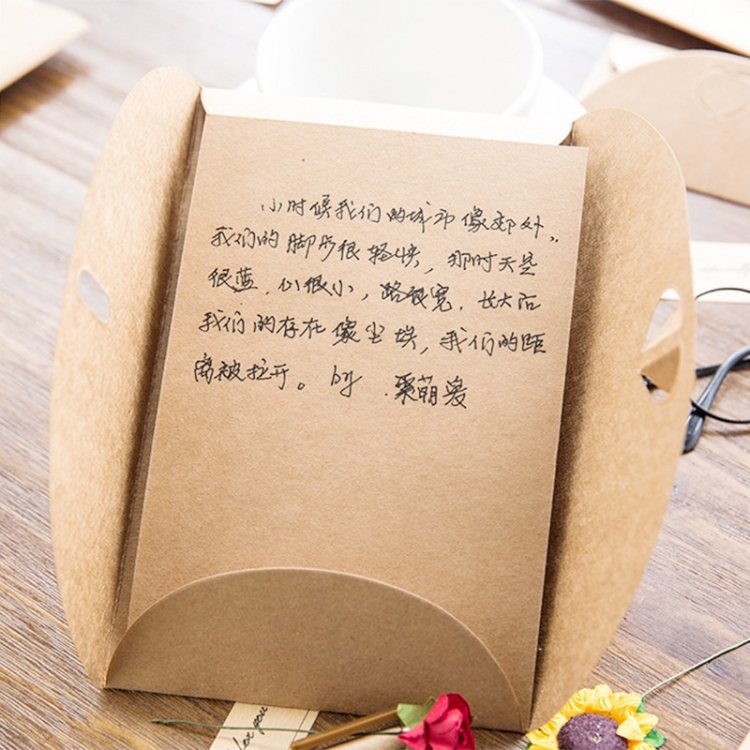 小时候我们的城市像郊外,
我们的脚步很轻快,那时天空
很蓝,心很小,路很宽,长大后
我们的存在像尘埃,我们的距
离被拉开。by 萌爱
for you